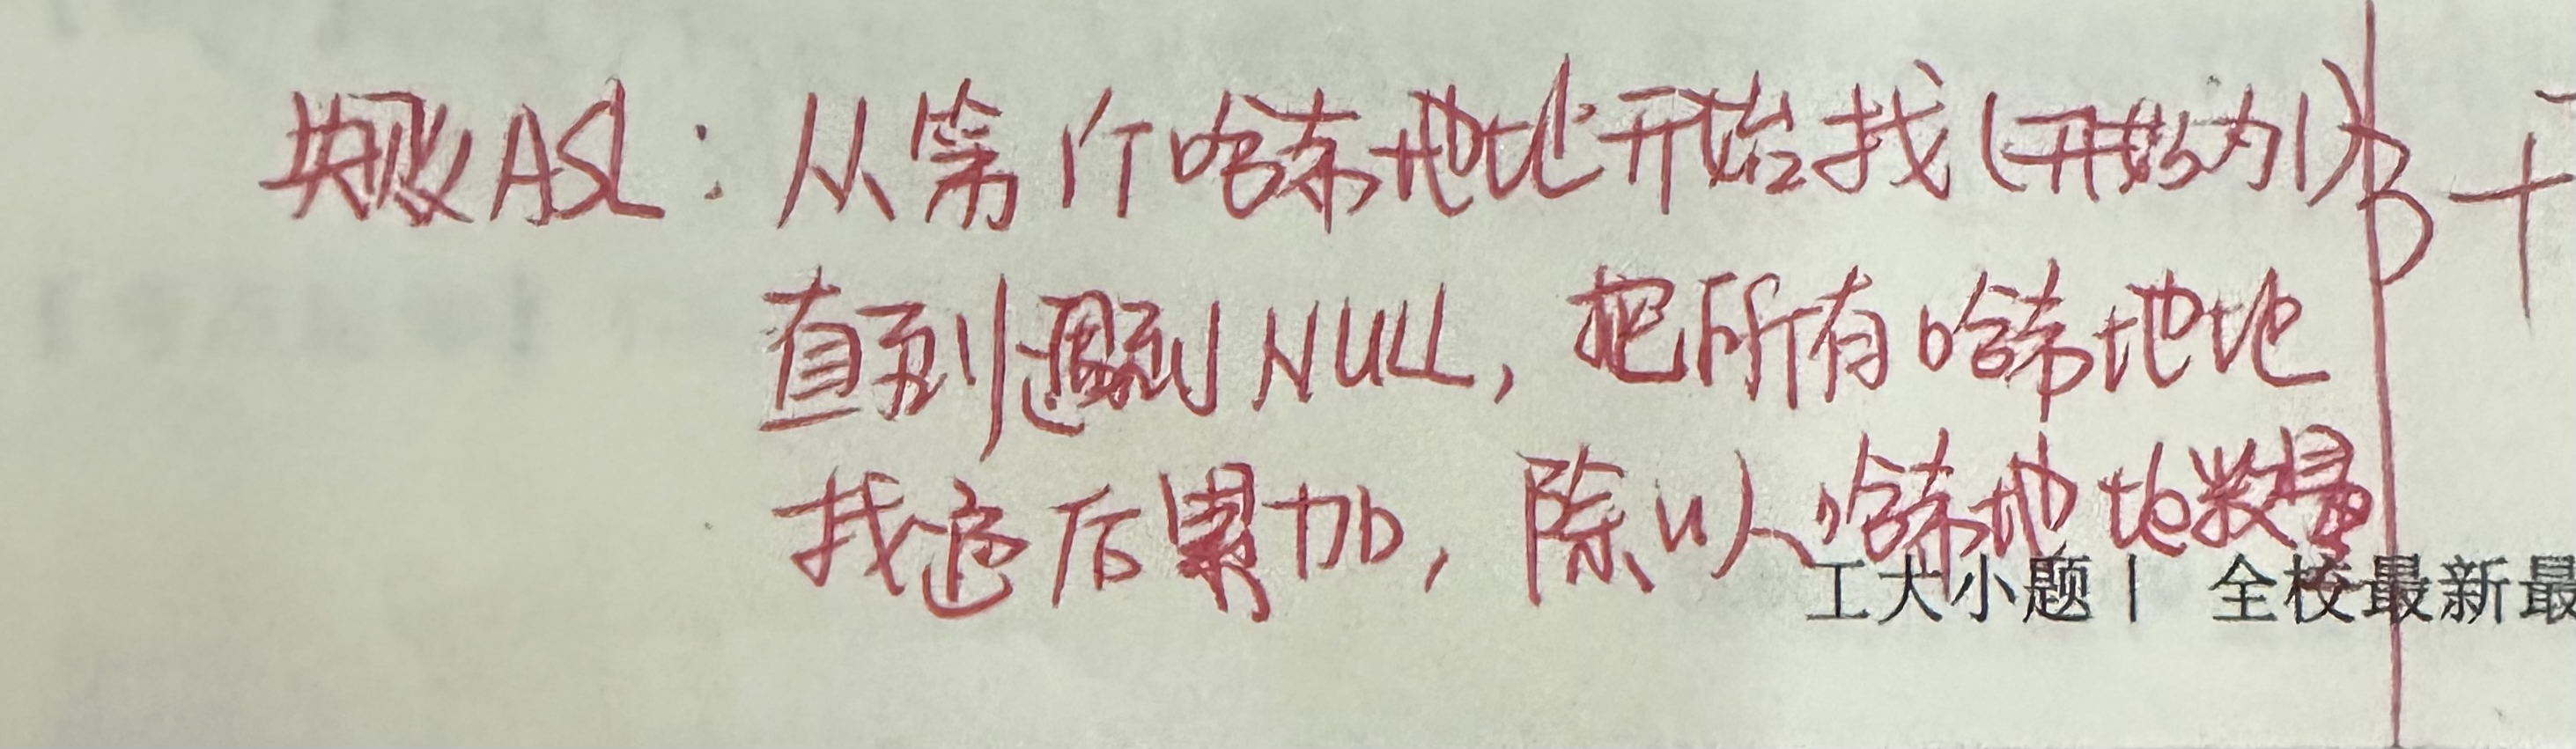 失败ASL：从第1个哈希地址开始找(开始为1)
直到遇到NULL，把所有哈希地址
找适后累加，除以哈希地址数量
工大小题| 全校最新最